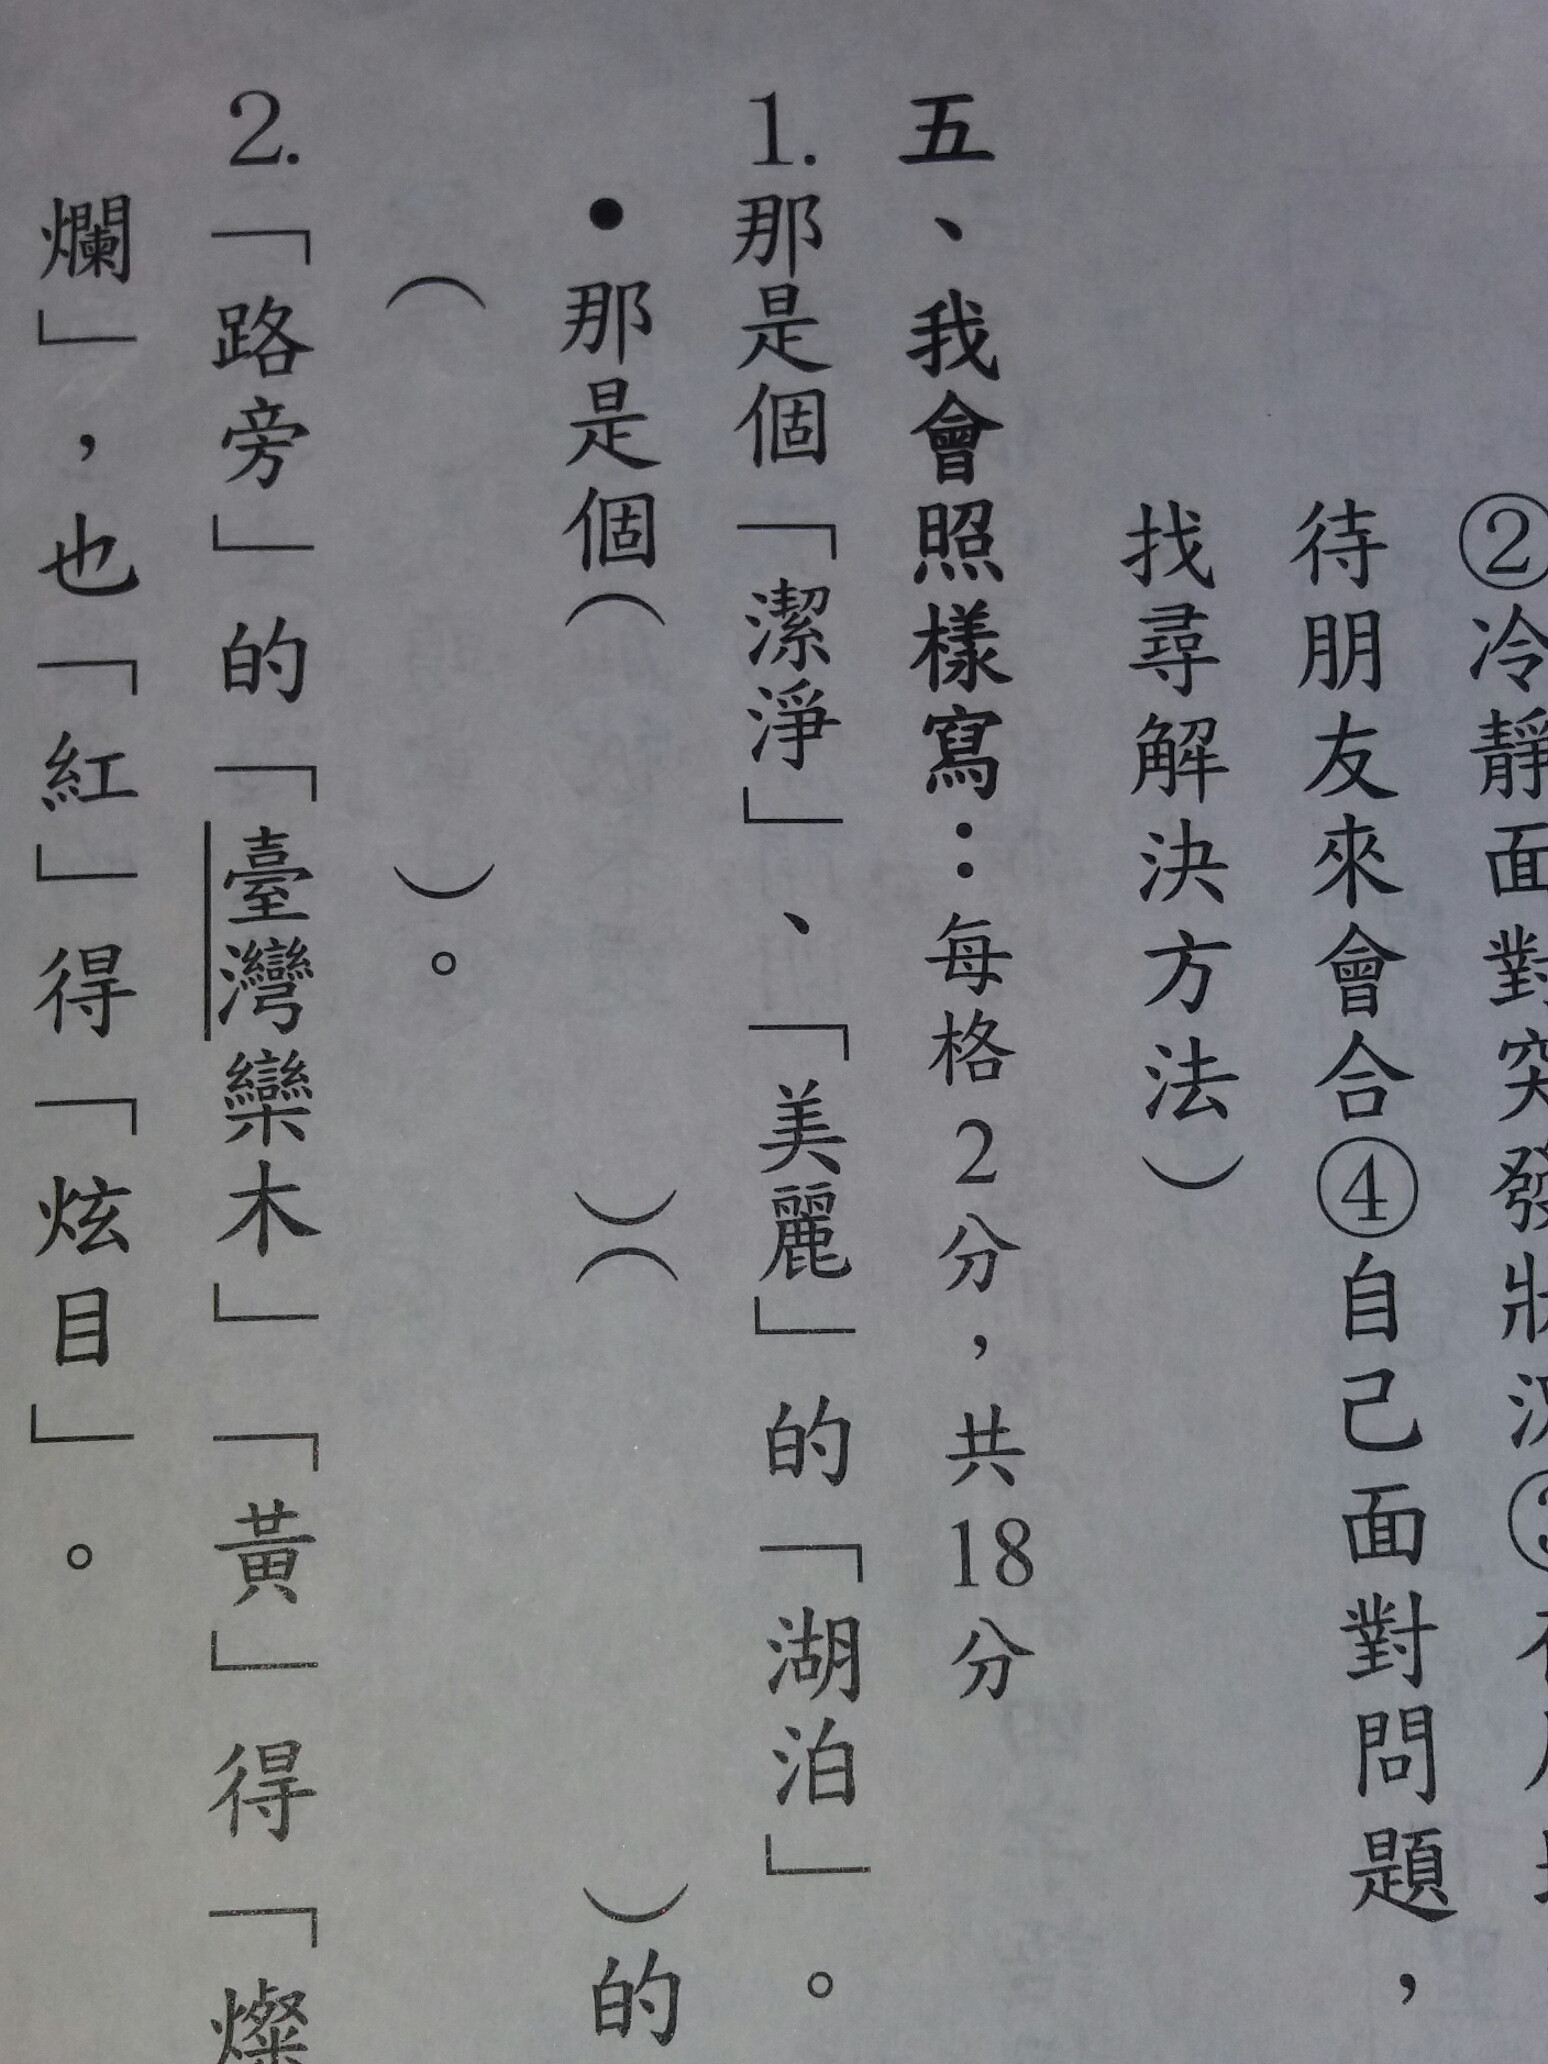 ②冷靜面對突發狀況
待朋友來會合④自己面對問題，
找尋解決方法）
五、我會照樣寫：每格2分，共18分
1.那是個「潔淨」、「美麗」的「湖泊」。
●那是個（　　　）（　　　）的
（　　　）。
2.「路旁」的「臺灣欒木」「黃」得「燦
爛」，也「紅」得「炫目」。